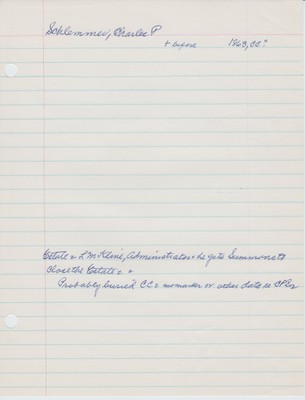 Schlemmer, Charles P
+ before 1863, CC?
Estate & L M Kline, Administrator + he gets Summons to
Close the Estate &
Probably buried CC & no marker or other data re CPS